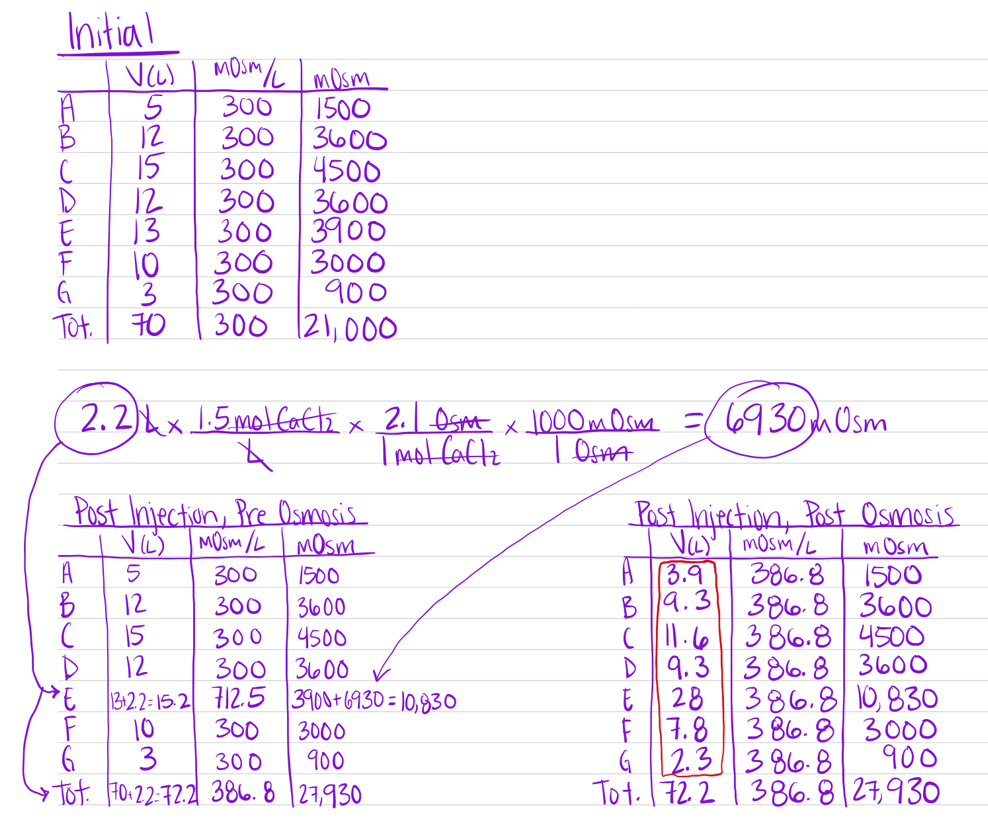 Initial
V(L) mOsm/L mOsm
A 5 300 1500
B 12 300 3600
C 15 300 4500
D 12 300 3600
E 13 300 3900
F 10 300 3000
G 3 300 900
Tot. 70 300 21,000
2.2 L × 1.5 mol CaCl2 / L × 2.1 Osm / 1 mol CaCl2 × 1000 mOsm / 1 Osm = 6930 mOsm
Post Injection, Pre Osmosis
V(L) mOsm/L mOsm
A 5 300 1500
B 12 300 3600
C 15 300 4500
D 12 300 3600
E 13+2.2=15.2 712.5 3900+6930=10,830
F 10 300 3000
G 3 300 900
Tot. 70+2.2=72.2 386.8 27,930
Post Injection, Post Osmosis
V(L) mOsm/L mOsm
A 3.9 386.8 1500
B 9.3 386.8 3600
C 11.6 386.8 4500
D 9.3 386.8 3600
E 28 386.8 10,830
F 7.8 386.8 3000
G 2.3 386.8 900
Tot. 72.2 386.8 27,930